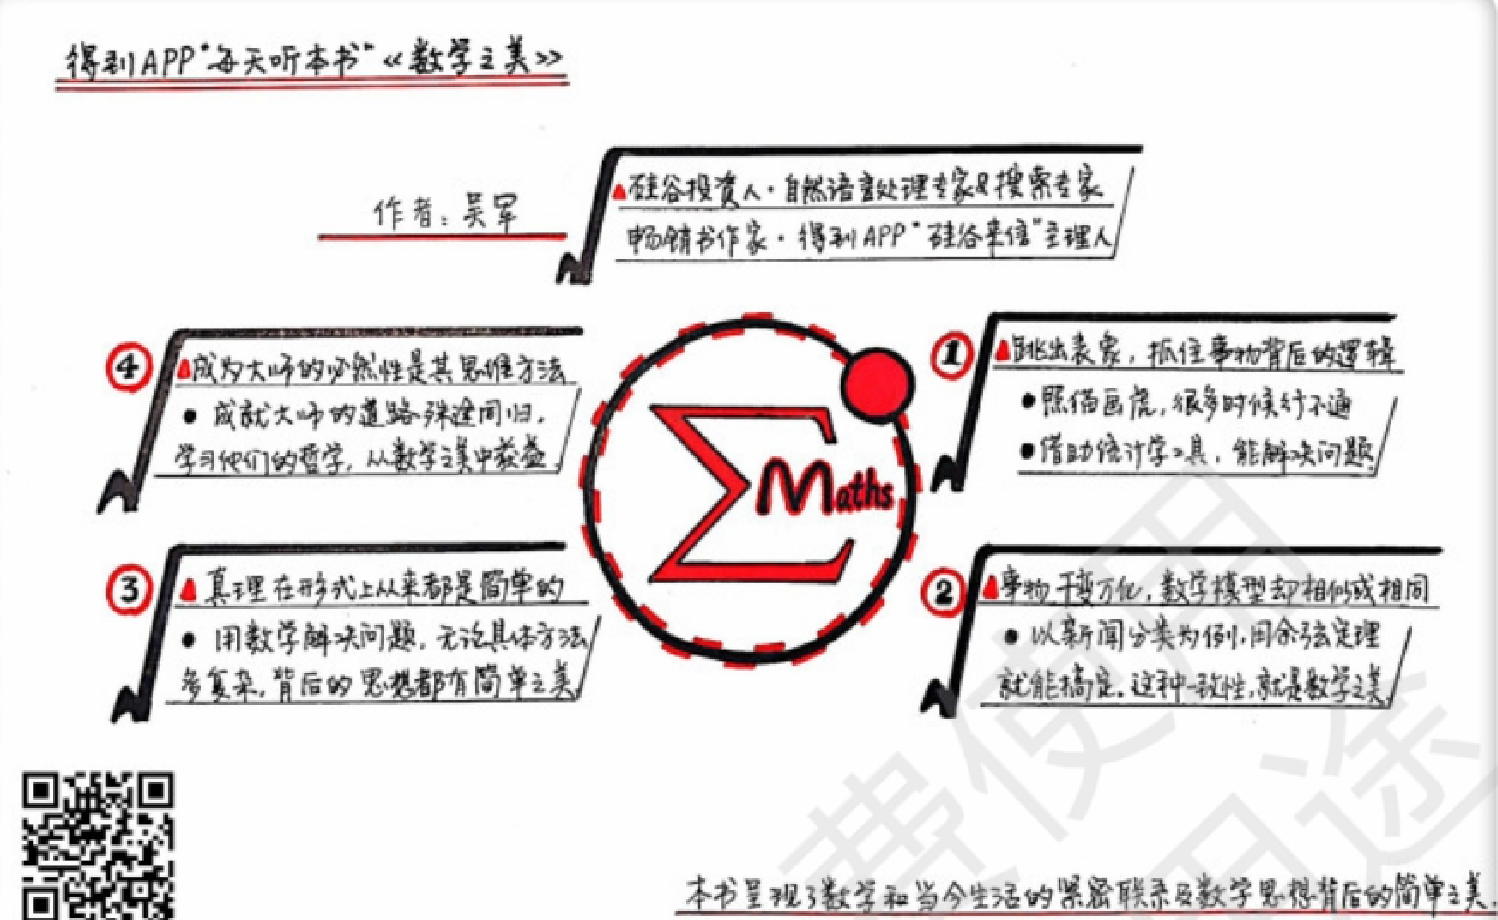 得到APP“每天听本书”《数学之美》
作者：吴军
硅谷投资人·自然语言处理专家&搜索专家
畅销书作家·得到APP“硅谷来信”主理人
① 跳出表象，抓住事物背后的逻辑
• 照猫画虎，很多时候行不通
• 借助统计学工具，能解决问题
② 事物千变万化，数学模型却相似或相同
• 以新闻分类为例，用余弦定理
就能搞定。这种一致性，就是数学之美
③ 真理在形式上从来都是简单的
• 用数学解决问题，无论具体方法
多复杂，背后的思想都有简单之美
④ 成为大师的必然性是其思维方法
• 成就大师的道路殊途同归，
学习他们的哲学，从数学之美中获益
Maths
本书呈现了数学和当今生活的紧密联系及数学思想背后的简单之美。
费使用
用途